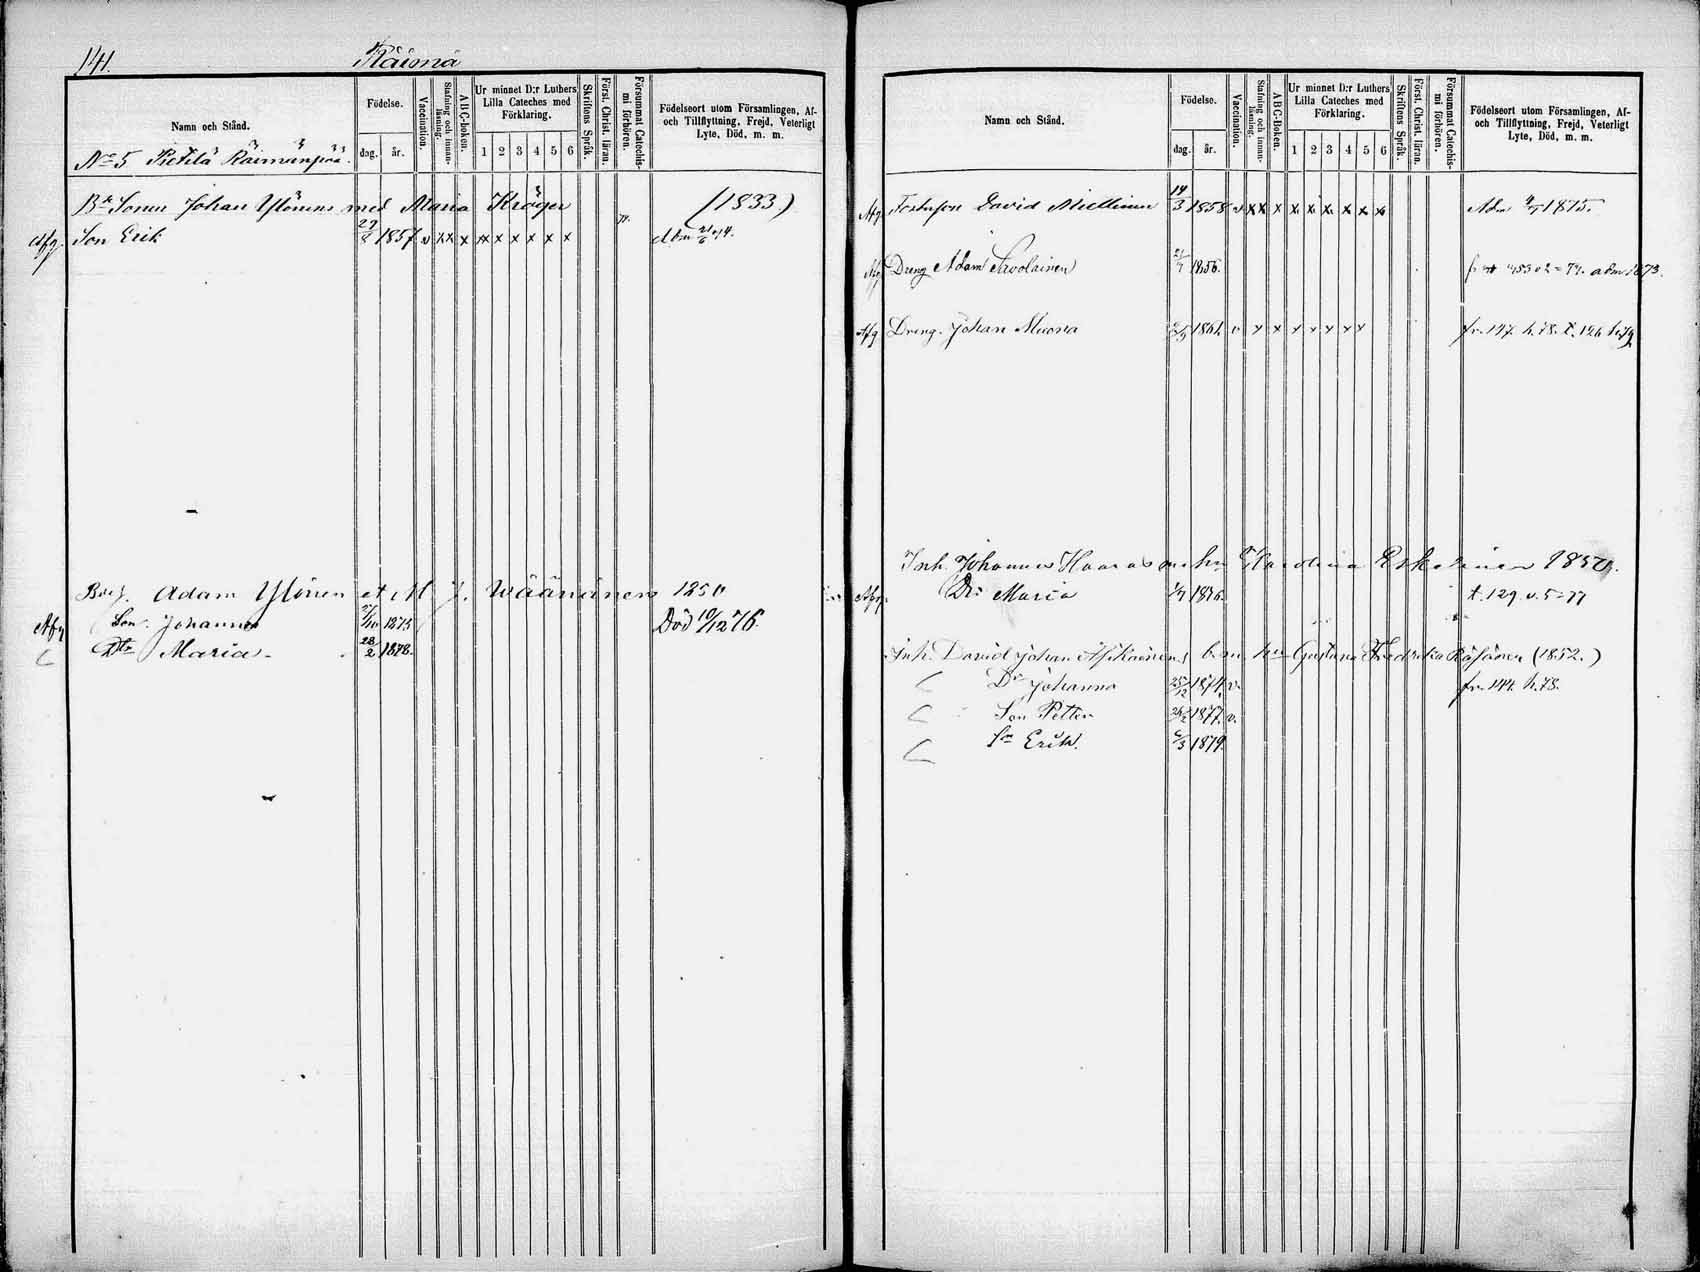 141.
Räimä
Namn och Stånd.
Födelse.
dag.
år.
Vaccination.
Stafning och innan-läsning.
ABC-boken.
Ur minnet D:r Luthers Lilla Cateches med Förklaring.
1 2 3 4 5 6
Skriftens Språk.
Först. Christ. läran.
Försummat Catechis-mi förhören.
Födelseort utom Församlingen, Af- och Tillflyttning, Frejd, Veterligt Lyte, Död, m. m.
No 5 Pietilä
Johan Ylönen med Maria Kröger (1833.)
Afg. Son Erik 29/8 1857 v x x x x x x x x x Adm 21/6 74.
Adam Ylönen et M J. Wäänänen
Afg Son Johannes 1875 Död 10/12 76.
Dtr Maria 28/2 1878.
Namn och Stånd.
Födelse.
dag.
år.
Vaccination.
Stafning och innan-läsning.
ABC-Boken.
Ur minnet D:r Luthers Lilla Cateches med Förklaring.
1 2 3 4 5 6
Skriftens Språk.
Först. Christ. läran.
Försummat Catechis-mi förhören.
Födelseort utom Församlingen, Af- och Tillflyttning, Frejd, Veterligt Lyte, Död, m. m.
Afg Fosterson David Miettinen 14/3 1858 v x x x x x x x x x Adm 1875.
Afg Dreng Adam Savolainen 1856. adm 1873.
Afg Dreng Johan Muona 1861. v x x x x x x x fr. 147. h.78. t. 126
Inh. Johannes Haaras m hu Karolina Eskelinen
Afg. Dr Maria 1876 t. 129. v. 5=77
Inh. David Johan Asikainen b. m. hu Gustava Fredrika Räsänen (1852.)
Dr Johanna 25/12 1874. v. fr. 144. h.78.
Son Petter 1877. v.
Sn Erik. 1879.